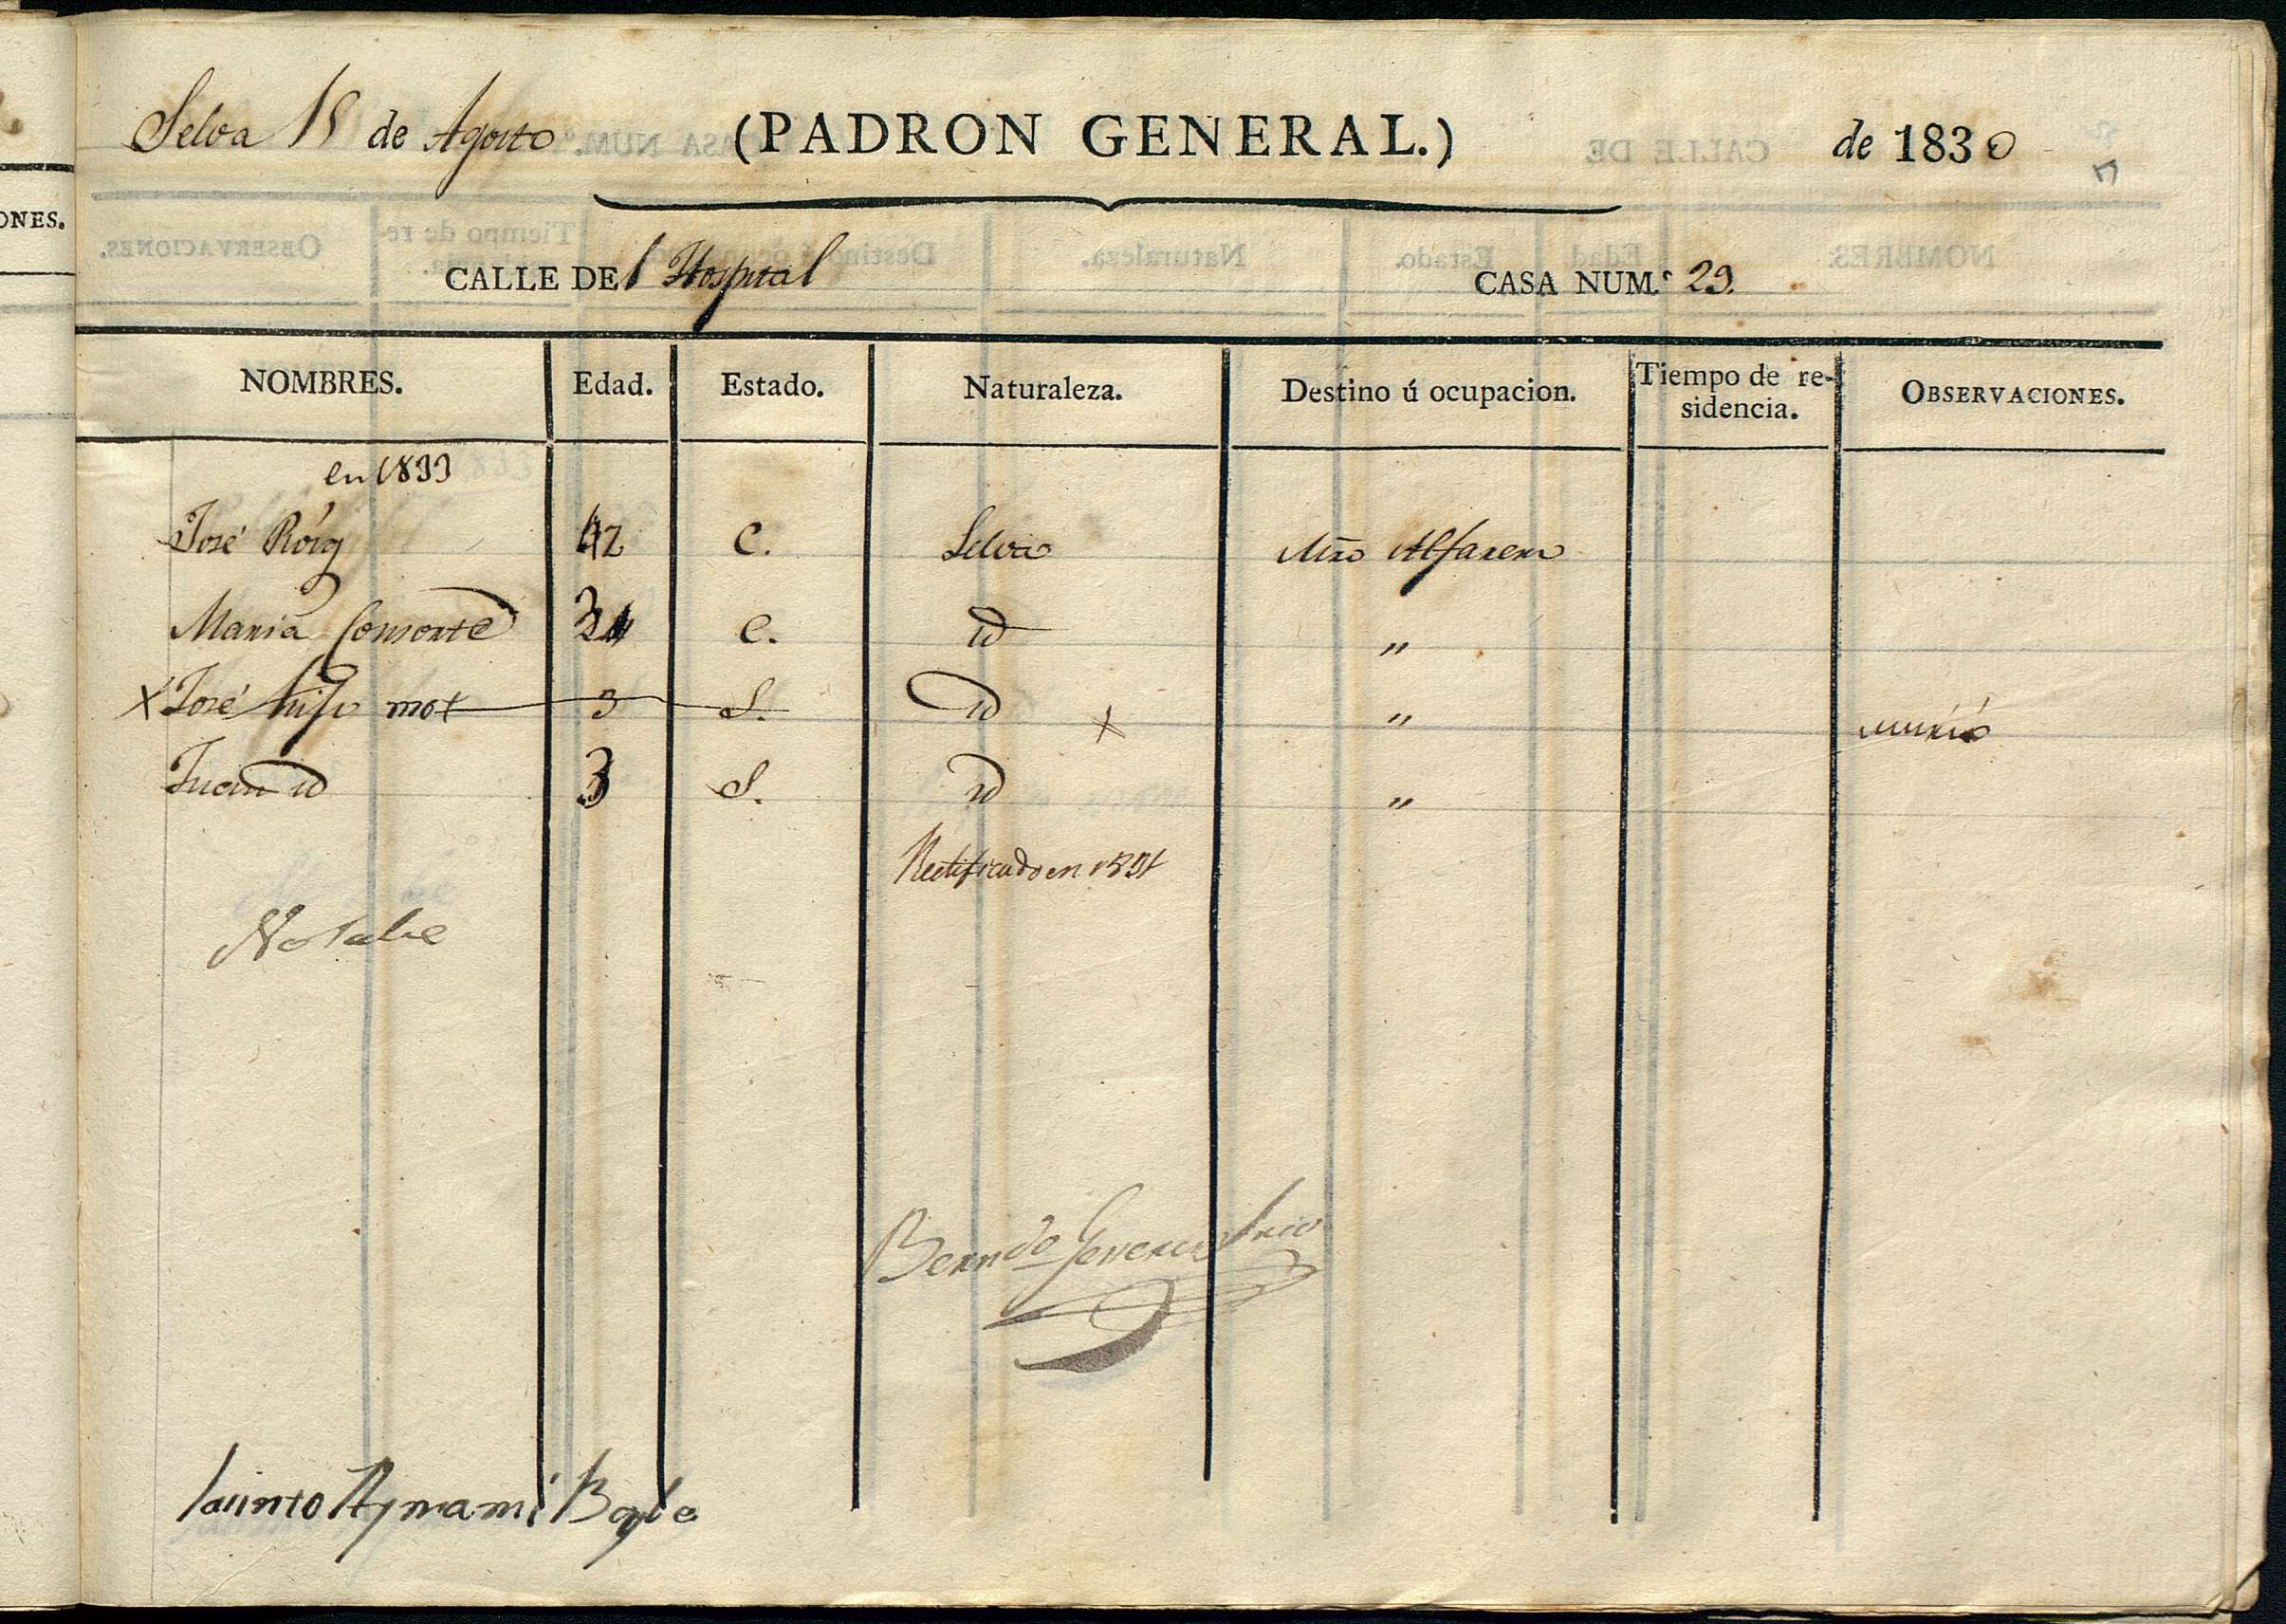 Selva 15 de Agosto (PADRON GENERAL.) de 1830
CALLE DEl Hospital CASA NUM.º 29.
ONES.
NOMBRES. Edad. Estado. Naturaleza. Destino ú ocupacion. Tiempo de re-
sidencia. OBSERVACIONES.
en 1833
José Róig 42 C. Selva Mro Alfarero
María Consorte C. id "
X José hijo mot 3 S. id X " murió
Juan id 3 S. id "
Rectificado en 1831
Notable
Berndo
Jacinto Aymamí Bayle